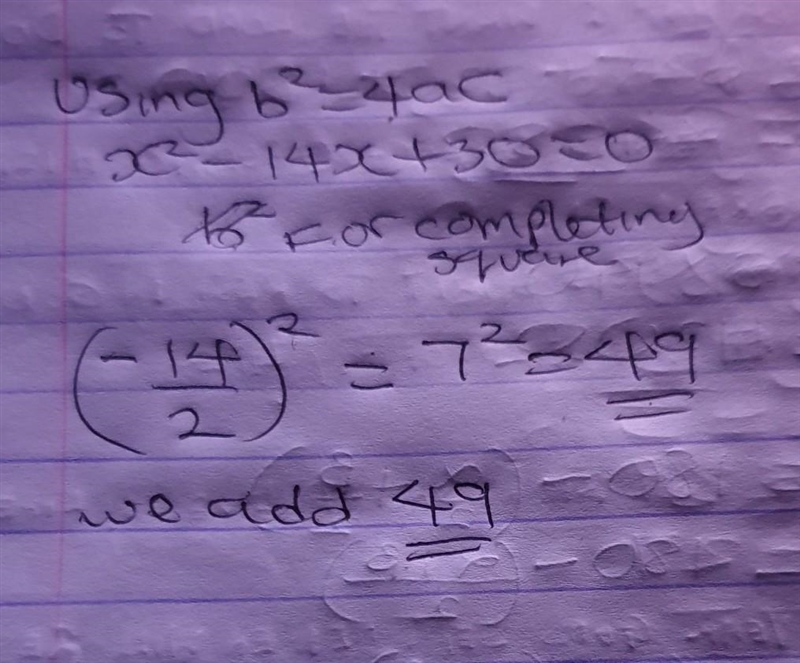 Using b² - 4ac
x² - 14x + 30 = 0
b² For completing
square
(-14/2)² = 7² = 49
we add 49